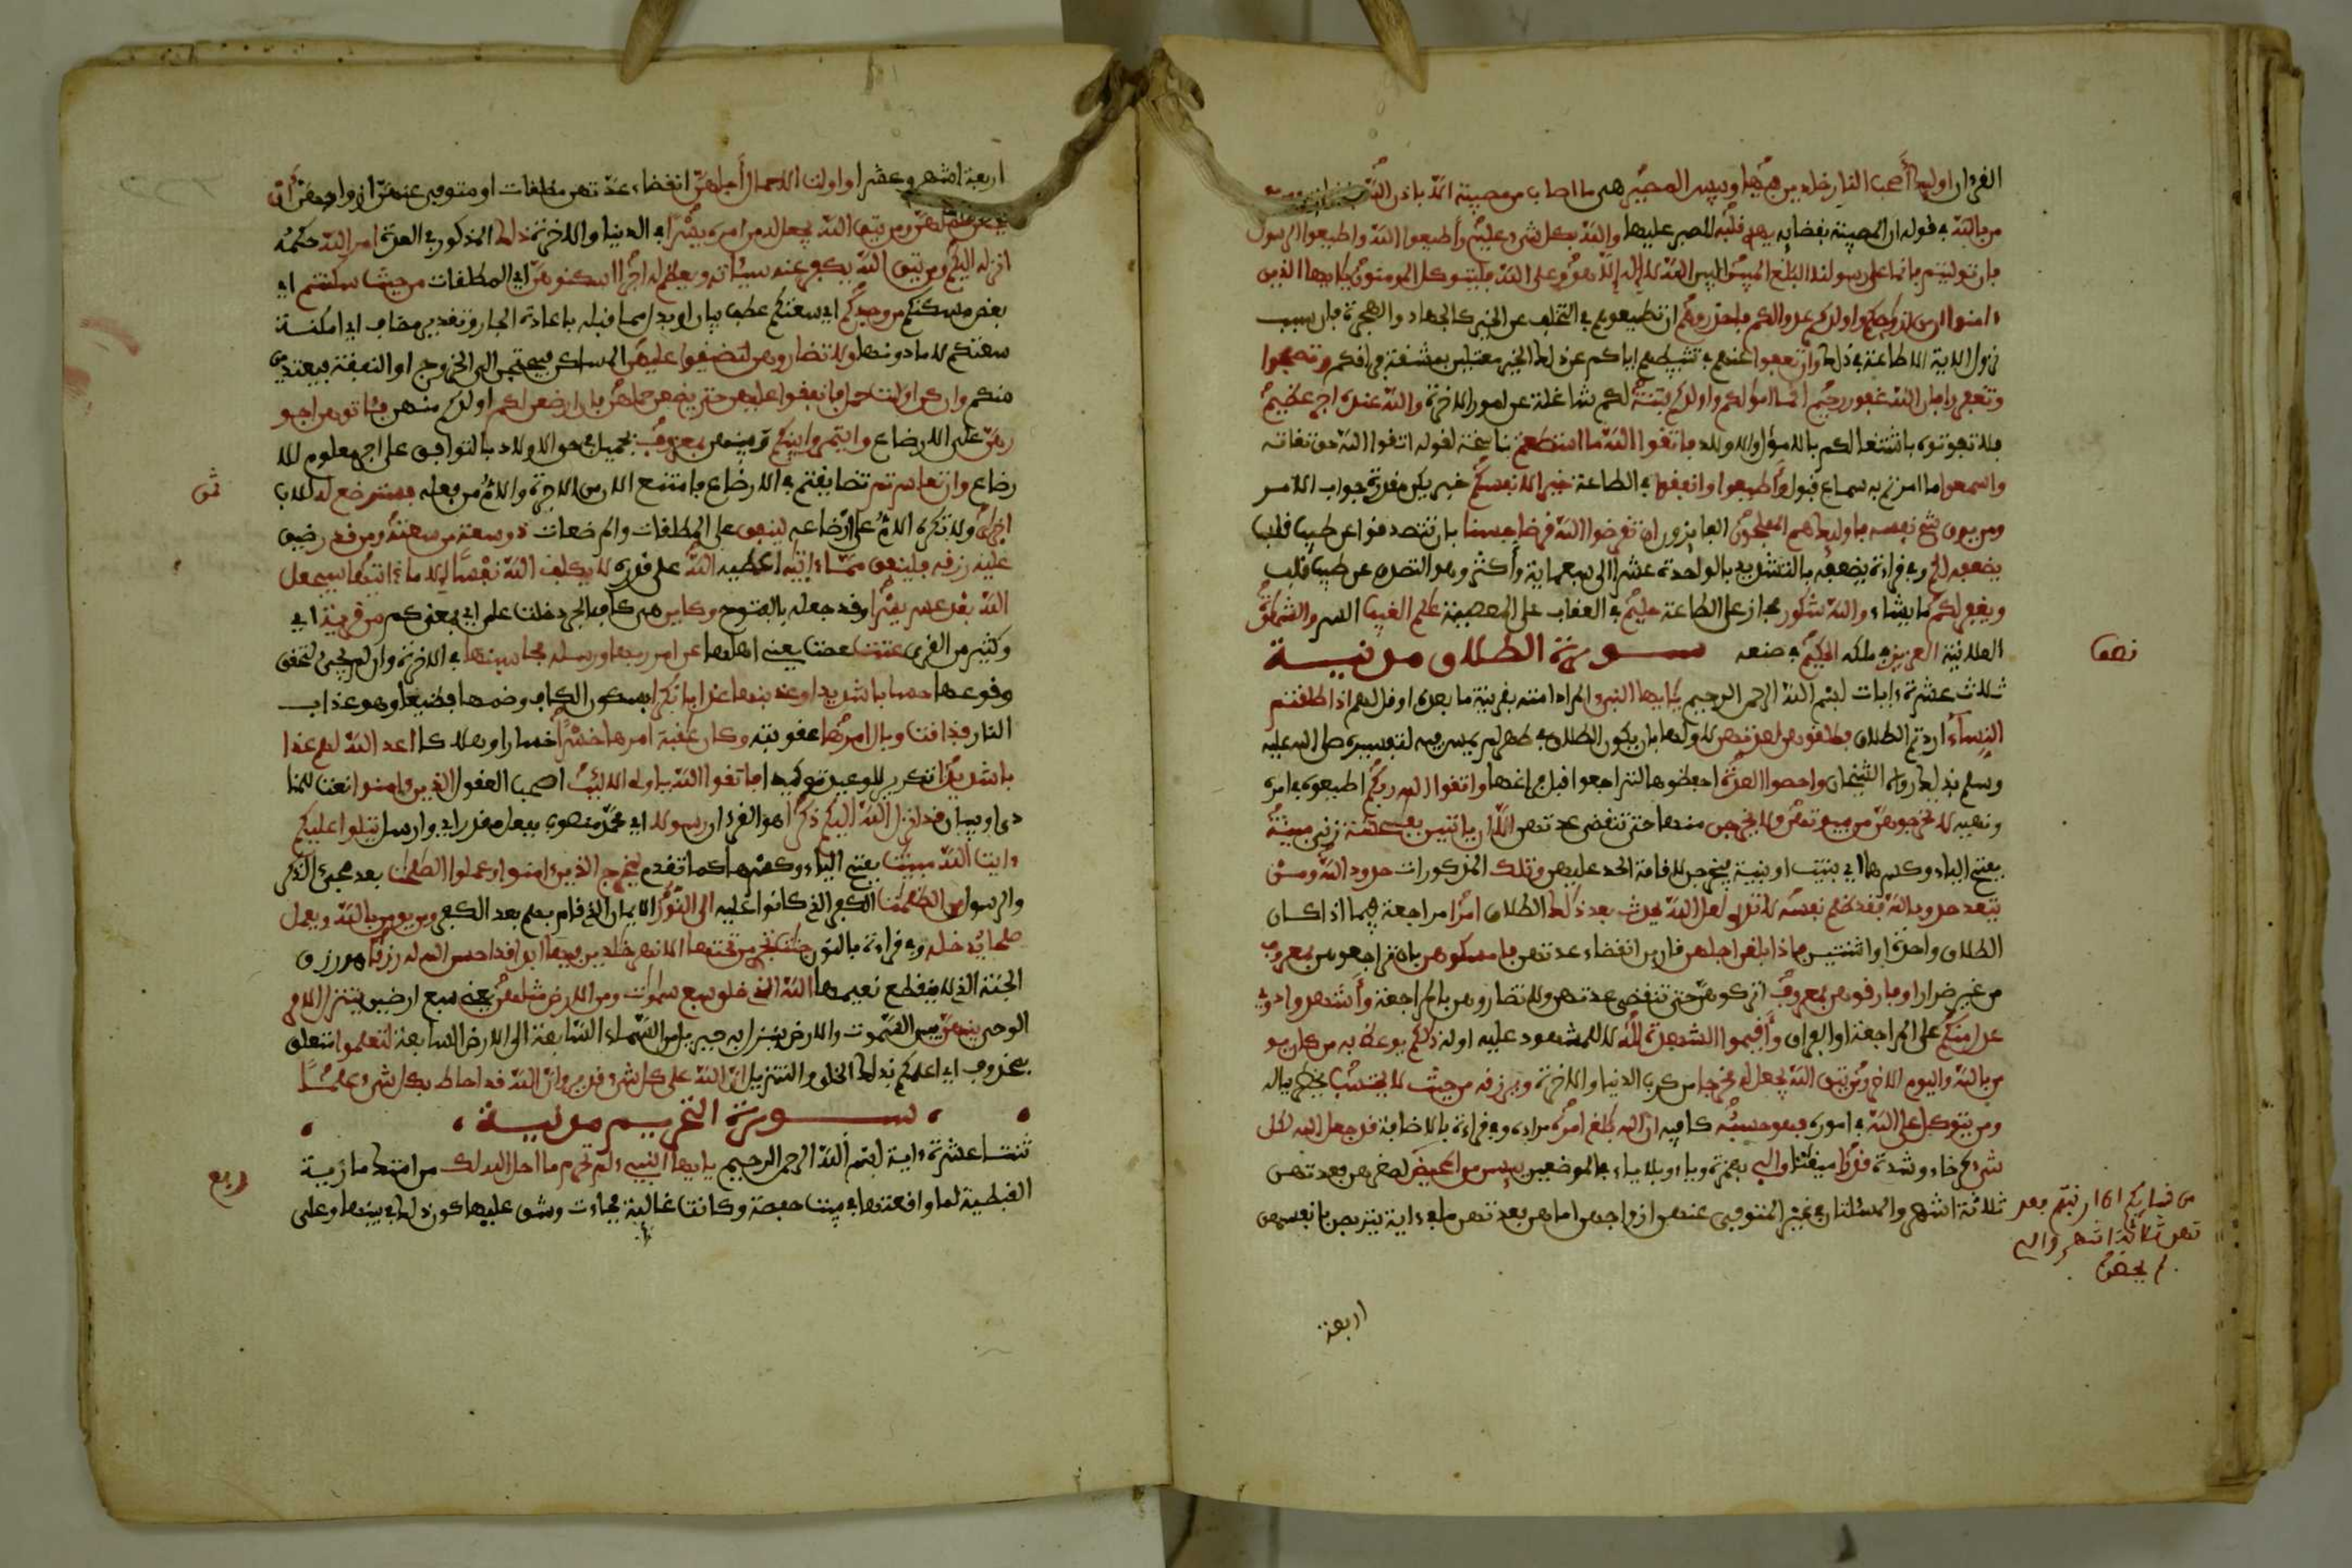 القرءان اوليك أصحب النار خلدين فيها وبيس المصير هي ما اصاب من مصيبة الا باذن الله
من بالله في قوله ان المصيبة بقضايه يهد قلبه للصبر عليها والله بكل شيء عليم وأطيعوا الله واطيعوا الرسول
فان توليتم فانما على رسولنا البلغ المبين البين الله لا إله إلا هو وعلى الله فليتوكل المومنون يأيها الذين
ءامنوا ان من ازوجكم واولدكم عدوا لكم فاحذروهم ان تطيعوهم في التخلف عن الخير كالجهاد والهجرة فان سبب
نزول الاية الاطاعة في ذلك وان تعفوا عنهم في تثبيطهم اياكم عن ذلك الخير معتلين بمشقة فراقكم وتصفحوا
وتغفروا فان الله غفور رحيم انما امولكم واولدكم فتنة لكم شاغلة عن امور الاخرة والله عنده اجر عظيم
فلا تفوتوه باشتغالكم بالاموال والاولاد فاتقوا الله ما استطعتم ناسخة لقوله اتقوا الله حق تقاته
واسمعوا ما امرتم به سماع قبول وأطيعوا وانفقوا في الطاعة خيرا لانفسكم خبر يكن مقدرة جواب الامر
ومن يوق شح نفسه فاوليك هم المفلحون الفايزون ان تقرضوا الله قرضا حسنا بان تتصدقوا عن طيب قلب
يضعفه لكم وفي قراءة يضعفه بالتشديد بالواحدة عشرا الى سبعماية وأكثر وهو التصدق عن طيب قلب
ويغفر لكم ما يشاء والله شكور مجاز على الطاعة حليم في العقاب على المعصية علم الغيب السر والشهدة
العلانية العزيز في ملكه الحكيم في صنعه سورة الطلاق مدنية
نصف
ثلاث عشرة ءايات بسم الله الرحمن الرحيم يأيها النبي المراد امته بقرينة ما بعده او قل لهم اذا طلقتم
النساء اردتم الطلاق فطلقوهن لعدتهن لاولها بان يكون الطلاق في طهر لم يمس فيه لتفسيره صلى الله عليه
وسلم بذلك رواه الشيخان واحصوا العدة احفظوها لتراجعوا قبل فراغها واتقوا الله ربكم اطيعوه في امره
ونهيه لا تخرجوهن من بيوتهن ولا يخرجن منها حتى تنقضي عدتهن الا ان ياتين بفحشة زنى مبينة
بفتح الياء وكسرها اي بينت او بينة فيخرجن لاقامة الحد عليهن وتلك المذكورات حدود الله ومن
يتعد حدود الله فقد ظلم نفسه لا تدري لعل الله يحدث بعد ذلك الطلاق امرا مراجعة فيما اذا كان
الطلاق واحدة او اثنتين فاذا بلغن اجلهن قاربن انقضاء عدتهن فامسكوهن بان تراجعوهن بمعروف
من غير ضرار او فارقوهن بمعروف اتركوهن حتى تنقضي عدتهن ولا تضاروهن بالمراجعة وأشهدوا ذوي
عدل منكم على المراجعة او الفراق وأقيموا الشهدة لله لا للمشهود عليه او له ذلكم يوعظ به من كان يو
من بالله واليوم الاخر ومن يتق الله يجعل له مخرجا من كرب الدنيا والاخرة ويرزقه من حيث لا يحتسب يخطر بباله
ومن يتوكل على الله في اموره فهو حسبه كافيه ان الله بلغ امره مراده وفي قراءة بالاضافة قد جعل الله لكل
شيء كرخاء وشدة قدرا ميقاتا والي بهمزة وياء وبلا ياء في الموضعين يئسن من المحيض لصغرهن فعدتهن
ثلاثة اشهر والمسئلتان في غير المتوفى عنهن ازواجهن اما هن فعدتهن ما في ءاية يتربصن بانفسهن
من نسايكم ان ارتبتم فعد
تهن ثلاثة اشهر والي
لم يحضن
اربعة
اربعة اشهر وعشرا واولت الاحمال أجلهن انقضاء عدتهن مطلقات او متوفى عنهن ازواجهن أن
يضعن حملهن ومن يتق الله يجعل له من امره يسرا في الدنيا والاخرة ذلك المذكور في العدة امر الله حكمه
انزله اليكم ومن يتق الله يكفر عنه سيئاته ويعظم له اجرا اسكنوهن اي المطلقات من حيث سكنتم اي
بعض مسكنكم من وجدكم اي سعتكم عطف بيان او بدل مما قبله باعادة الجار وتقدير مضاف اي امكنة
سعتكم لا ما دونها ولا تضاروهن لتضيقوا عليهن المساكن فيحتجن الى الخروج او النفقة فيفتدين
منكم وان كن اولت حمل فانفقوا عليهن حتى يضعن حملهن فان ارضعن لكم اولدكم منهن فئاتوهن اجو
رهن على الارضاع وايتمروا بينكم وبينهن بمعروف بجميل في حق الاولاد بالتوافق على اجر معلوم للا
رضاع وان تعاسرتم تضايقتم في الارضاع فامتنع الاب من الاجرة والام من فعله فسترضع له للاب
ثمن
اخرى ولا تكره الام على ارضاعه لينفق على المطلقات والمرضعات ذو سعة من سعته ومن قدر ضيق
عليه رزقه فلينفق مما ءاتيه اعطيه الله على قدره لا يكلف الله نفسا الا ما ءاتيها سيجعل
الله بعد عسر يسرا وقد جعله بالفتوح وكاين هي كاف الجر دخلت على اي بمعنى كم من قرية اي
وكثير من القرى عتت عصت يعني اهلها عن امر ربها ورسله فحاسبنها في الاخرة وان لم تجئ لتحقق
وقوعها حسابا شديدا وعذبنها عذابا نكرا بسكون الكاف وضمها فظيعا وهو عذاب
النار فذاقت وبال امرها عقوبته وكان عقبة امرها خسرا خسارا وهلاكا اعد الله لهم عذا
با شديدا تكرير للوعيد توكيدا فاتقوا الله ياولي الالبب اصحب العقول الذين ءامنوا نعت للمنا
دى او بيان قد انزل الله اليكم ذكرا هو القرءان رسولا اي محمدا منصوب بفعل مقدر اي وارسل يتلوا عليكم
ءايت الله مبينت بفتح الياء وكسرها كما تقدم ليخرج الذين ءامنوا وعملوا الصلحت بعد مجيئ الذكر
والرسول من الظلمت الكفر الذي كانوا عليه الى النور الايمان الذي قام بهم بعد الكفر ومن يومن بالله ويعمل
صلحا يدخله وفي قراءة بالنون جنت تجري من تحتها الانهر خلدين فيها ابدا قد احسن الله له رزقا هو رزق
الجنة التي لا ينقطع نعيمها الله الذي خلق سبع سموت ومن الارض مثلهن يعني سبع ارضين يتنزل الامر
الوحي بينهن بين السموت والارض ينزل به جبريل من السماء السابعة الى الارض السابعة لتعلموا متعلق
بمحذوف اي اعلمكم بذلك الخلق والتنزيل ان الله على كل شيء قدير وان الله قد احاط بكل شيء علما
سورة التحريم مدنية
ثنتا عشرة ءاية بسم الله الرحمن الرحيم يايها النبيء لم تحرم ما احل الله لك من امتك مارية
ربع
القبطية لما واقعتها في بيت حفصة وكانت غايبة فجاءت وشق عليها كون ذلك في بيتها وعلى